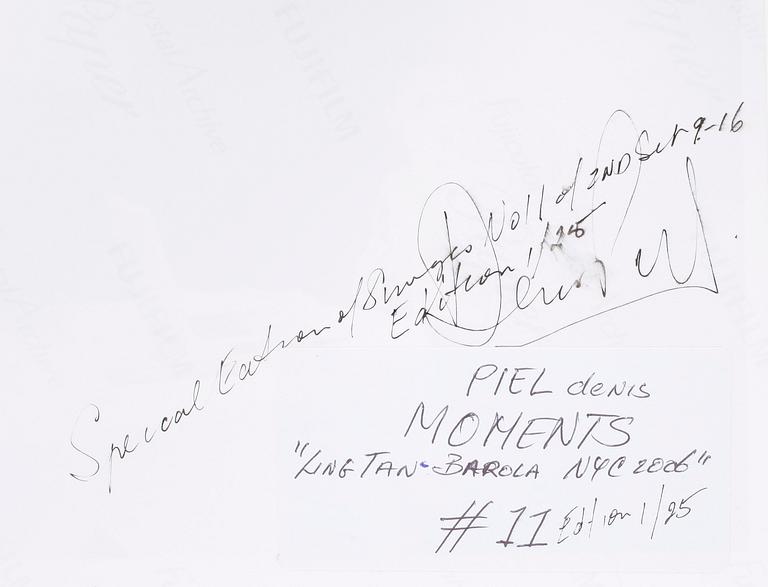 Special Edition of 8 Images Vol 1 of 2ND Set 9-16
Edition 1/25
Denis
PIEL denis
MOMENTS
"LING TAN - BAROLA NYC 2006"
#11 Edition 1/25
FUJIFILM
Crystal Archive
FUJIFILM